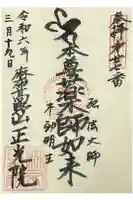 奉拝 第廿七番
弘法大師
本尊薬師如来
不動明王
正光院
令和六年
三月十九日